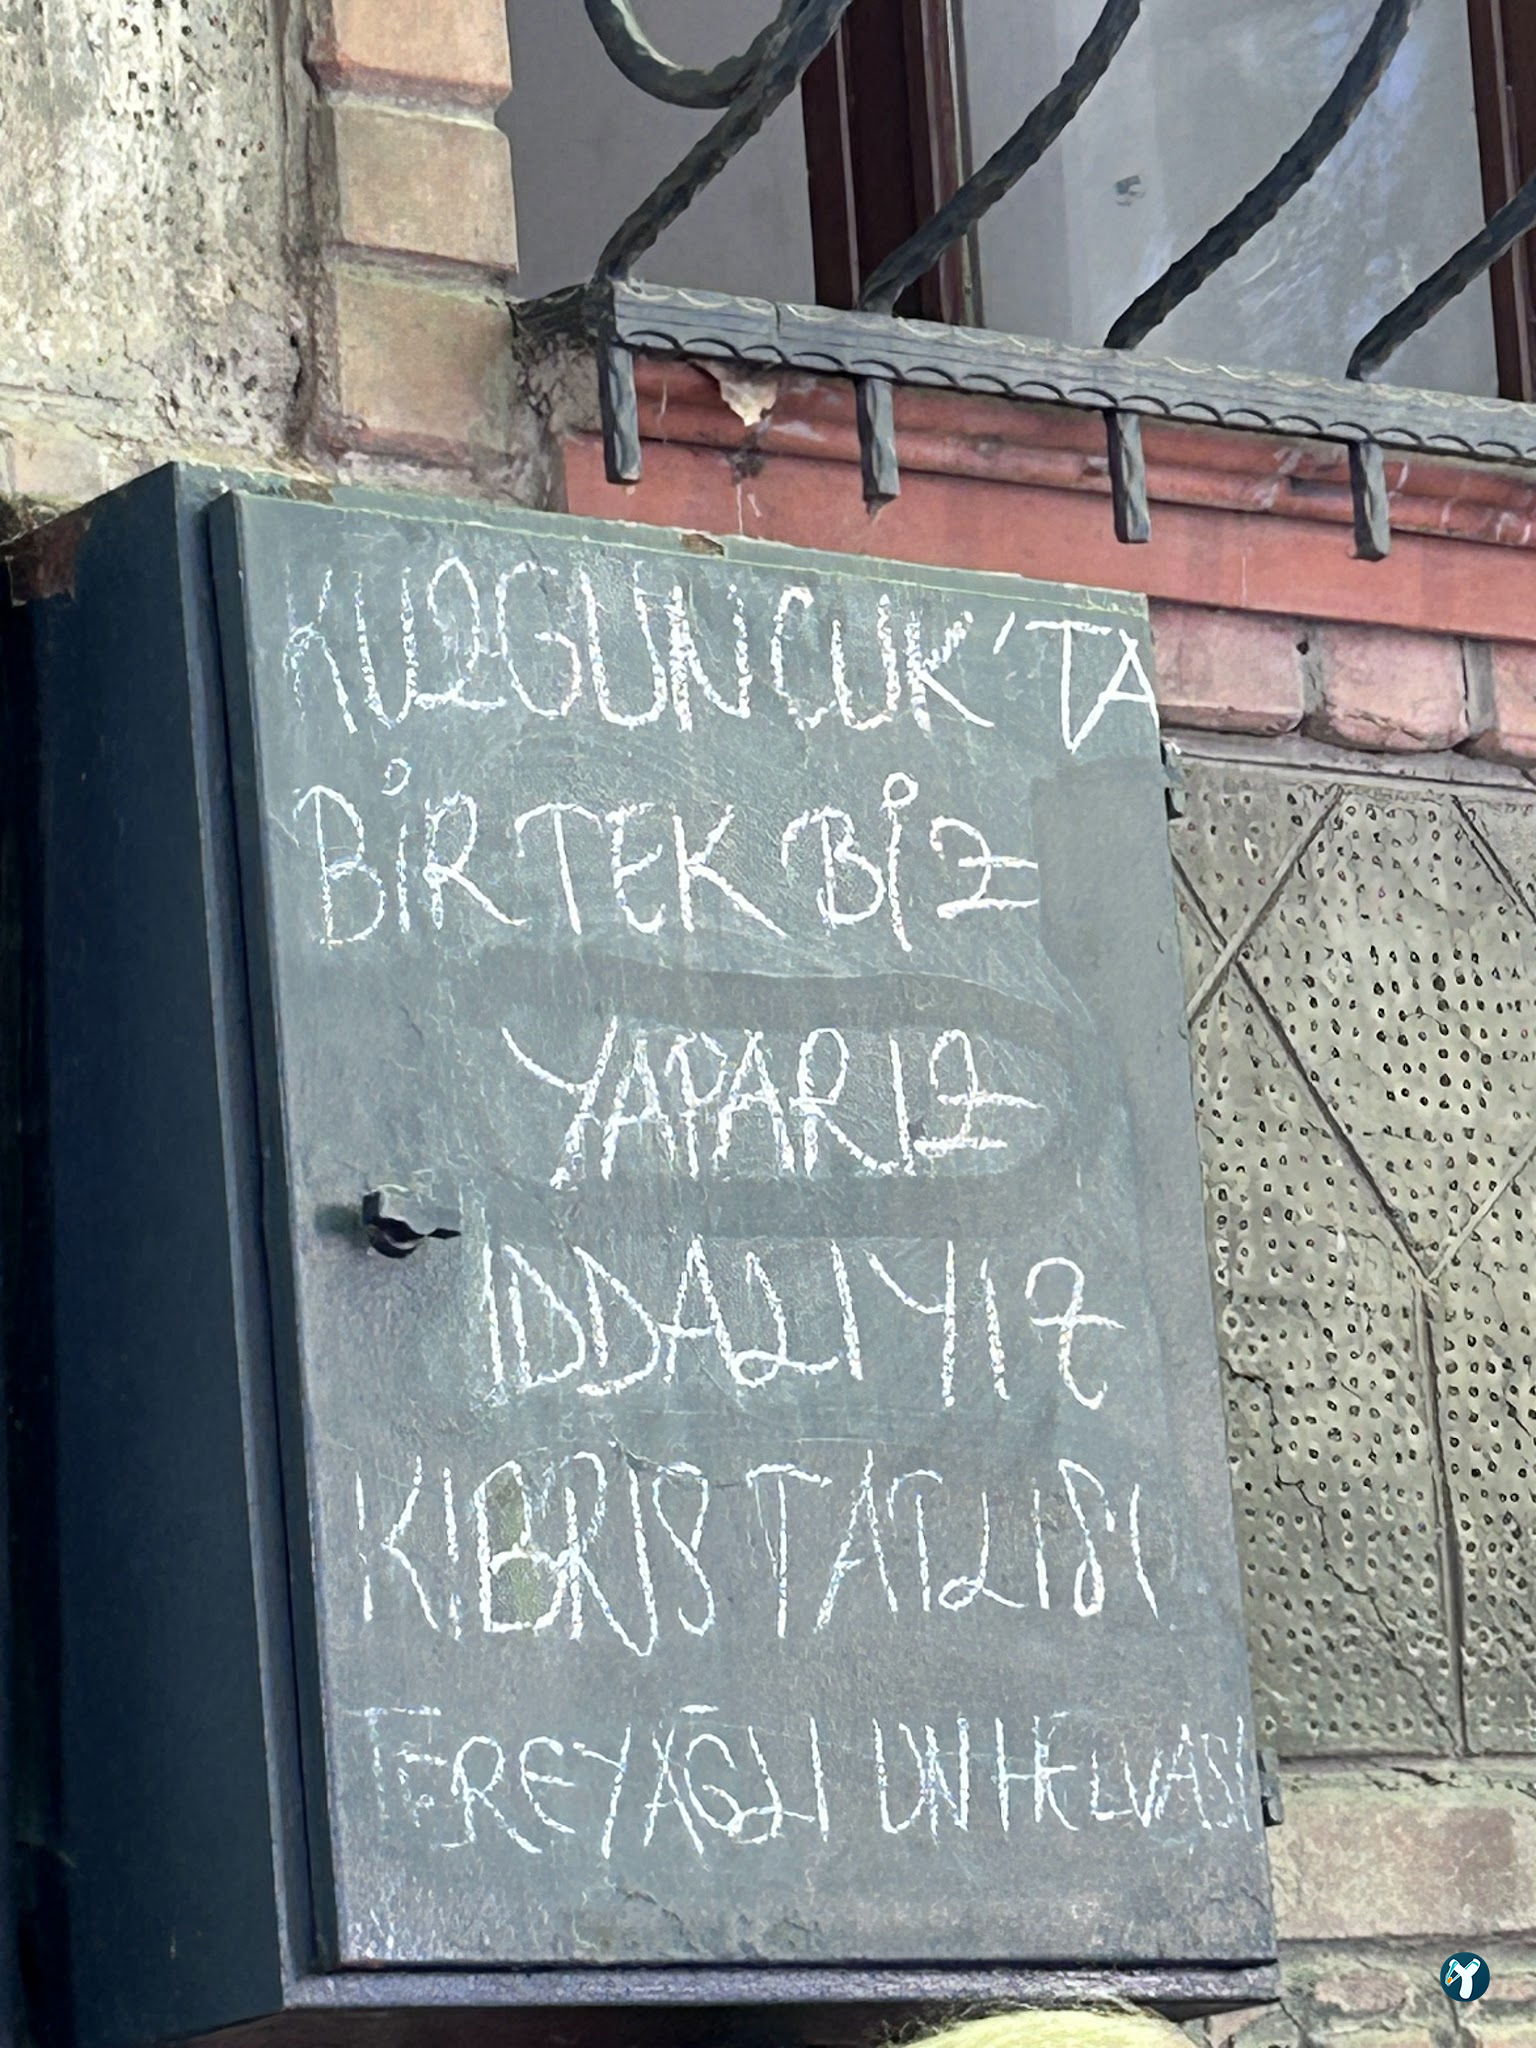 KUZGUNCUK'TA
BİR TEK BİZ
YAPARIZ
IDDALIYIZ
KIBRIS TATLISI
TEREYAĞLI UN HELVASI